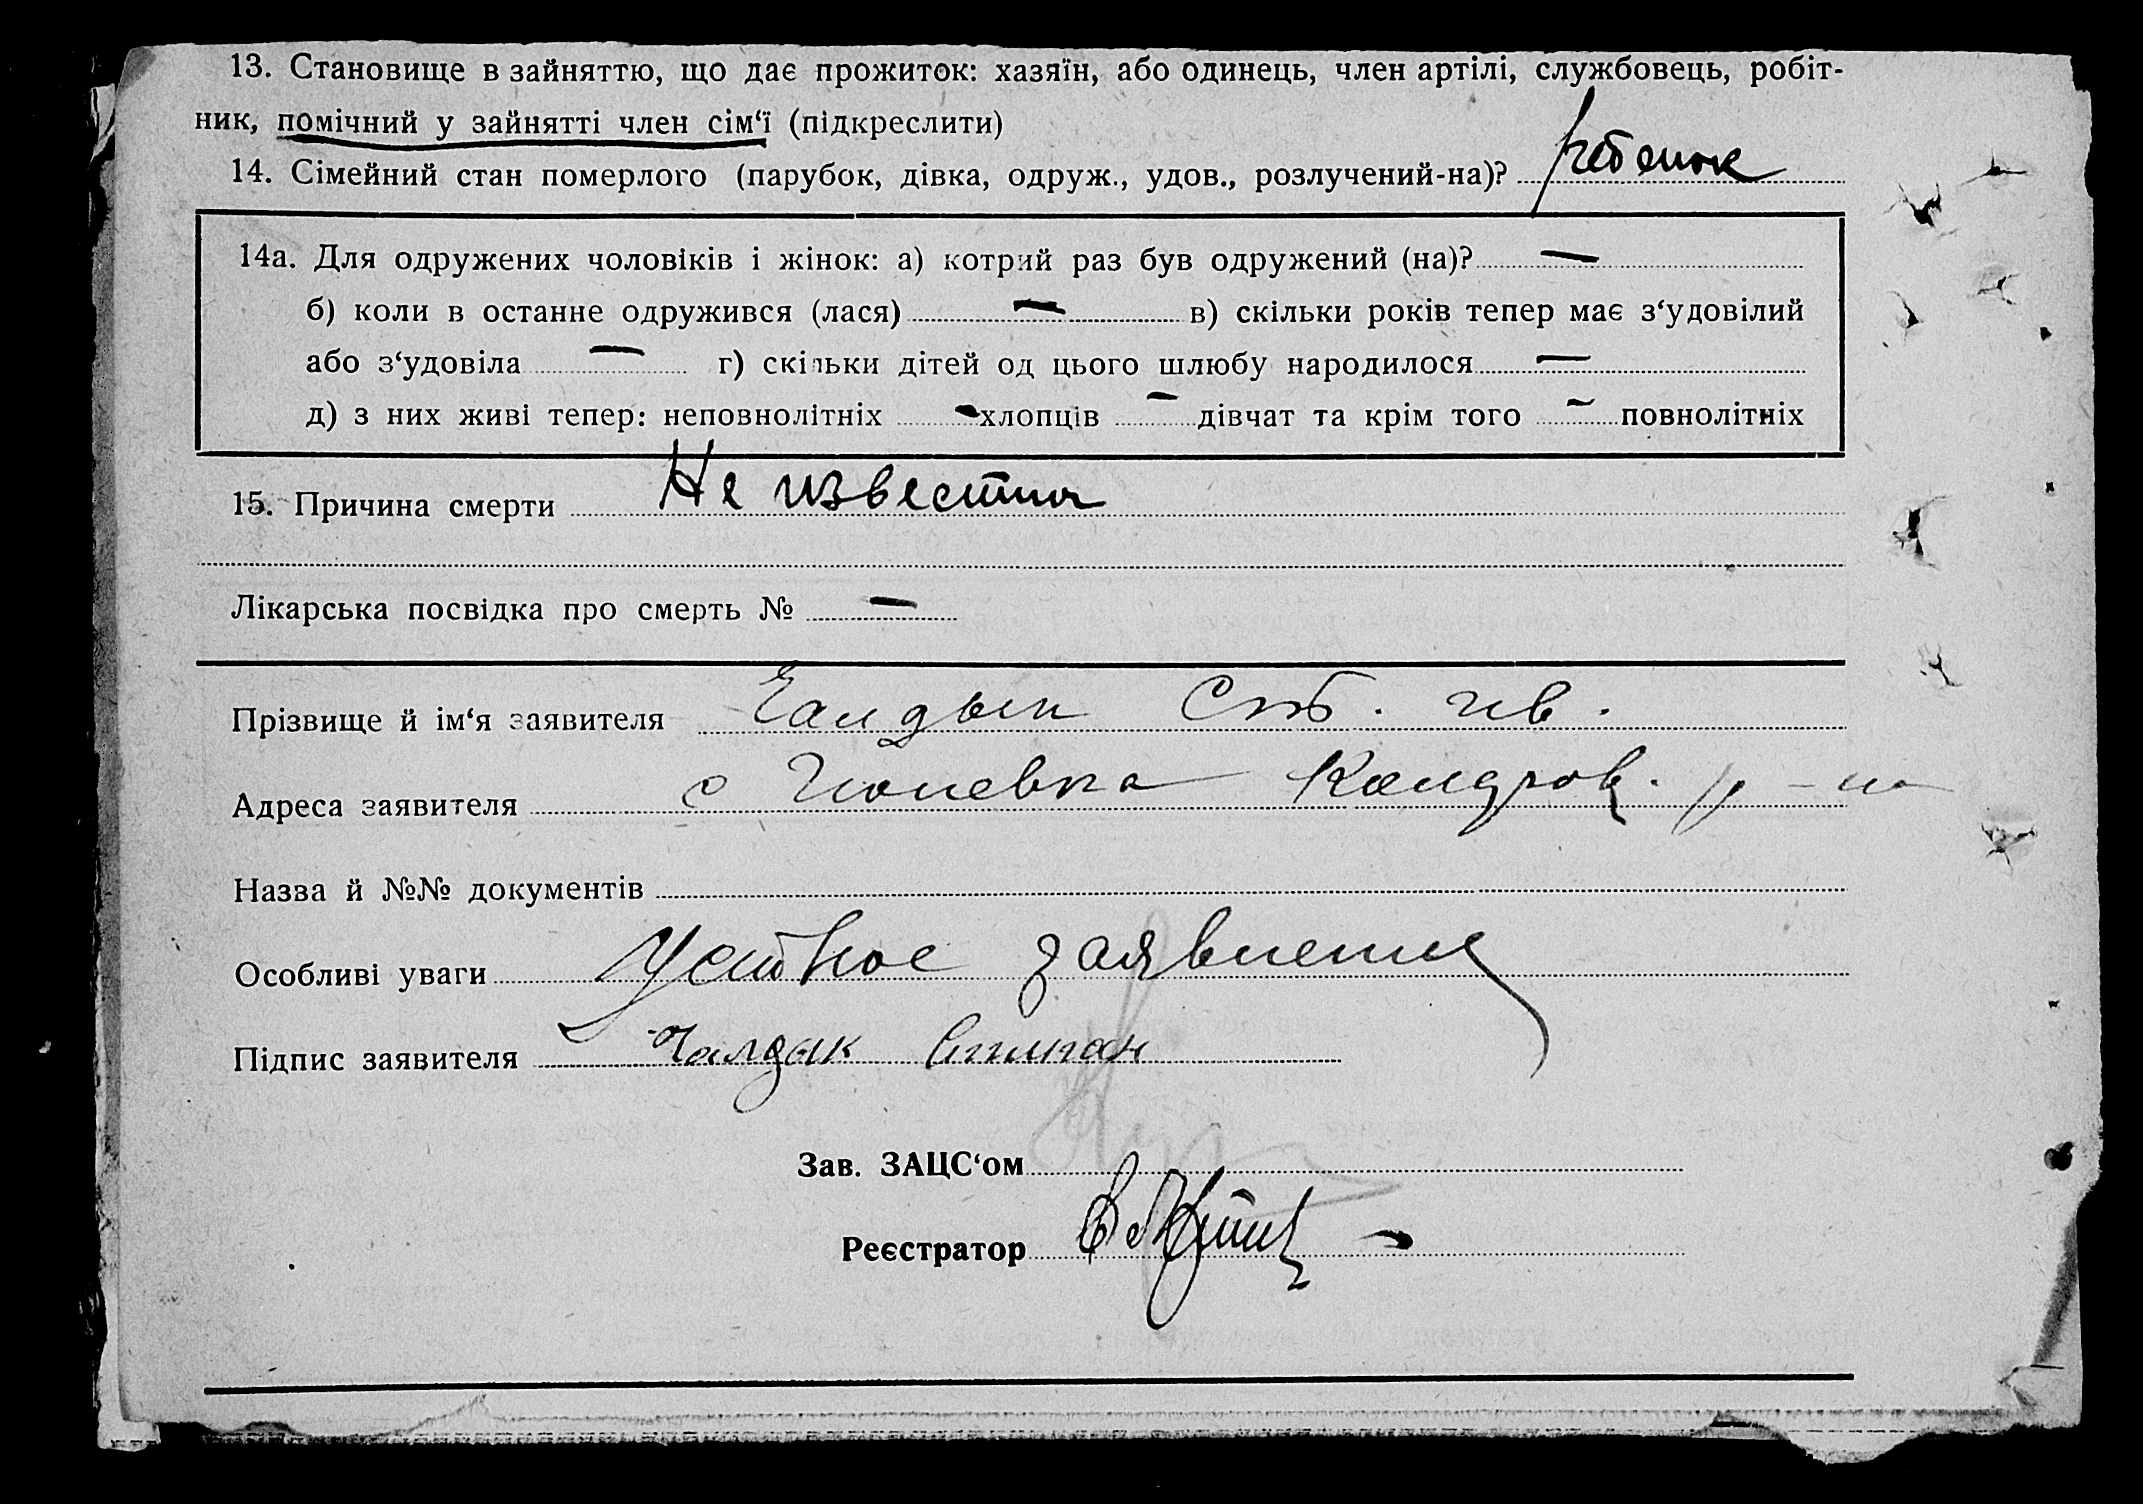 13. Становище в зайняттю, що дає прожиток: хазяїн, або одинець, член артілі, службовець, робіт-
ник, помічний у зайнятті член сім‘ї (підкреслити)
14. Сімейний стан померлого (парубок, дівка, одруж., удов., розлучений-на)? ребенок
14а. Для одружених чоловіків і жінок: а) котрий раз був одружений (на)? —
б) коли в останне одружився (лася) — в) скільки років тепер має з‘удовілий
або з‘удовіла — г) скільки дітей од цього шлюбу народилося —
д) з них живі тепер: неповнолітніх - хлопців - дівчат та крім того - повнолітніх
15. Причина смерти Не известна
Лікарська посвідка про смерть № —
Прізвище й ім‘я заявителя
Адреса заявителя с р-на
Назва й №№ документів
Особливі уваги Устное заявление
Підпис заявителя Чалдык
Зав. ЗАЦС‘ом
Реєстратор